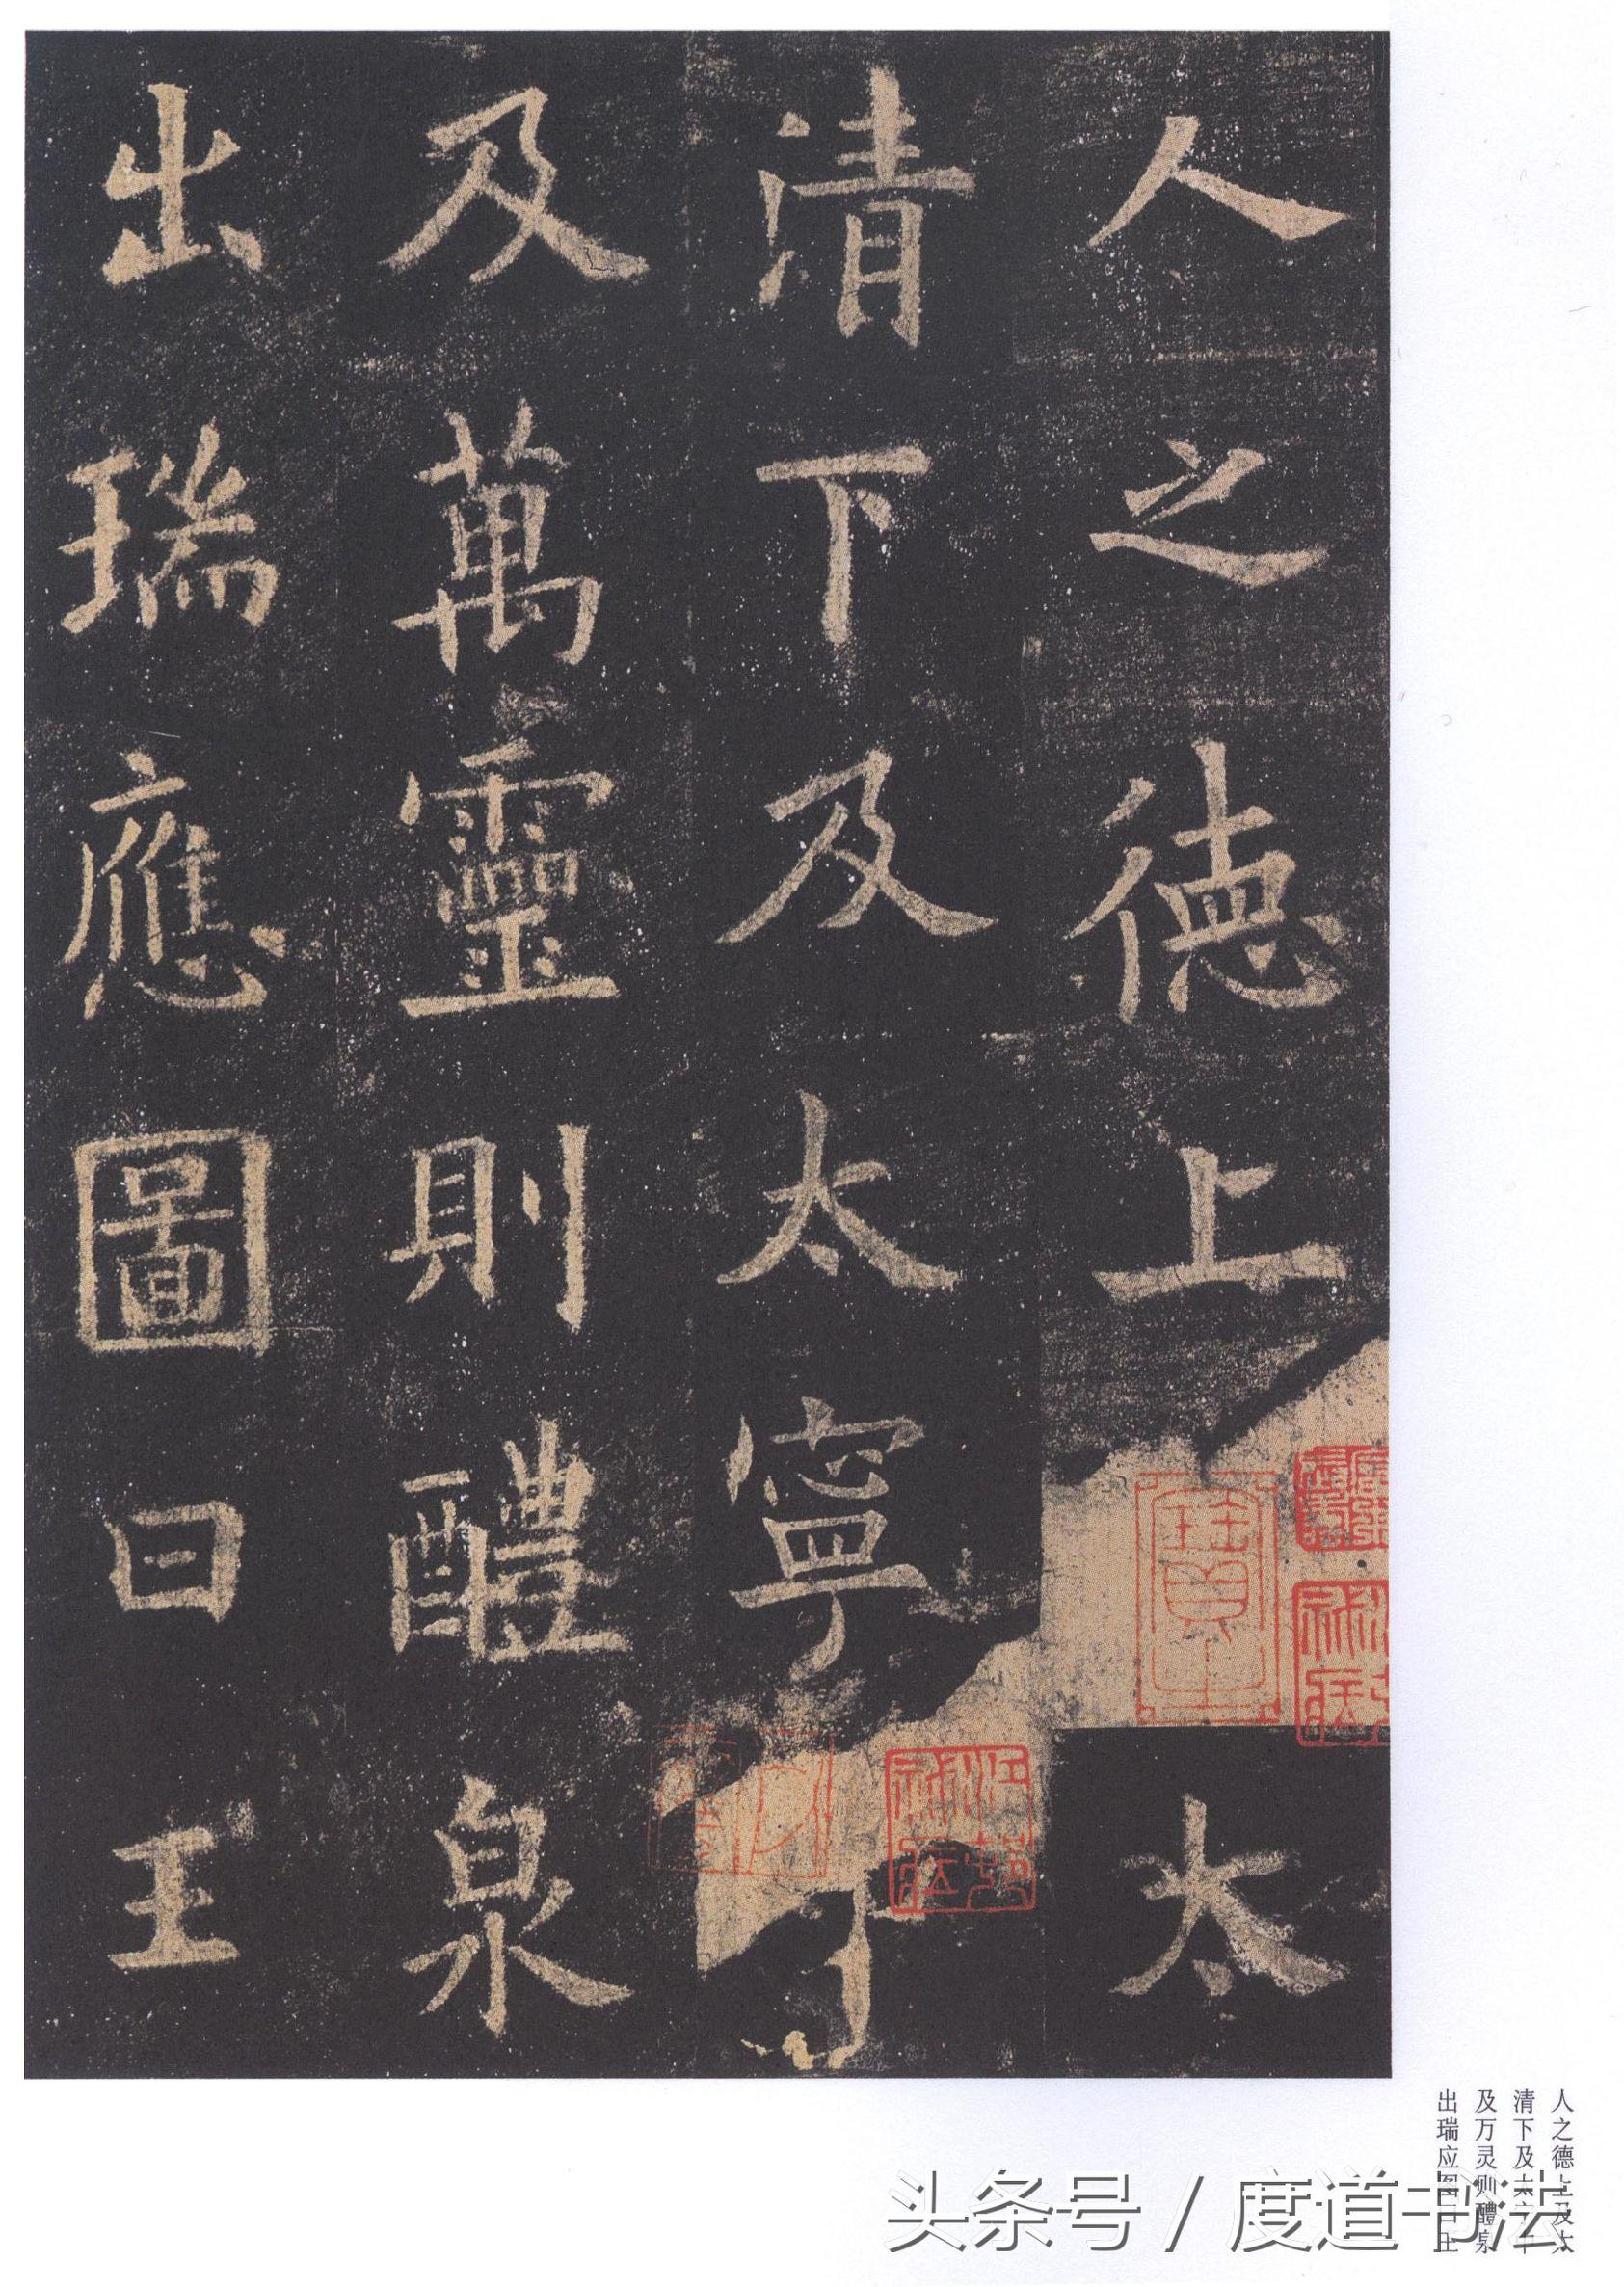 人之德上太
清下及太寧
及萬靈則醴泉
出瑞應圖曰王
人之德上及太
清下及太宁中
及万灵则醴泉
出瑞应图曰王
头条号 / 度道书法